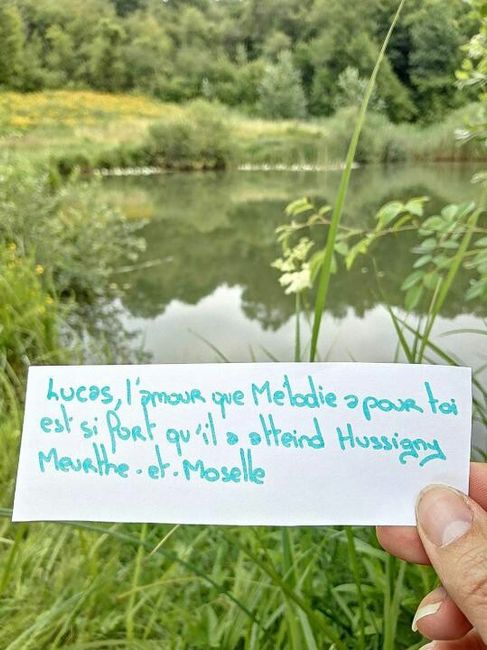 Lucas, l'amour que Mélodie a pour toi
est si fort qu'il a atteind Hussigny
Meurthe-et-Moselle